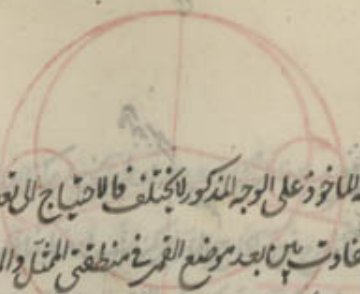 الماخوذ على الوجه المذكور لا يختلف فالاحتياج الى
تفاوت بين بعد موضع القمر فى منطقتى الممثل